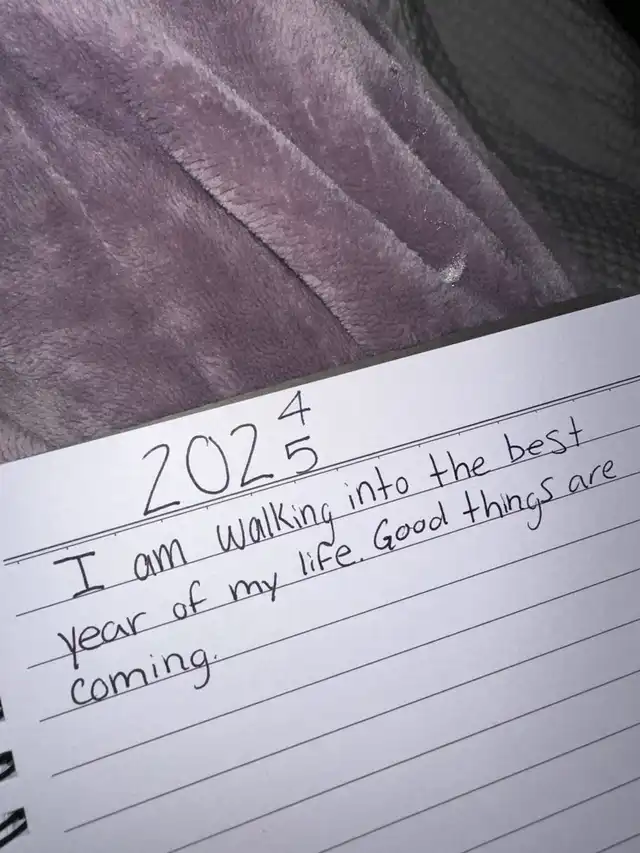 2024
5
I am walking into the best
year of my life. Good things are
coming.